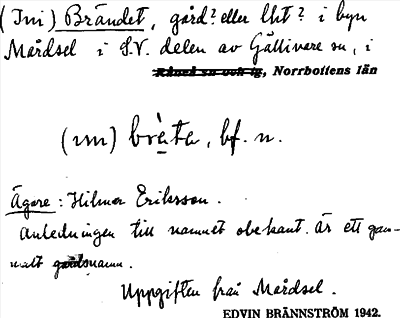 (Ini) Brändet, gård? eller lht? i byn
Mårdsel i S.V. delen av Gällivare sn, i
Råneå sn och tg, Norrbottens län
(ini) bräta, bf. n.
Ägare: Hilmer Eriksson.
Anledningen till namnet obekant. Är ett gam-
malt gårdsnamn.
Uppgiften från Mårdsel.
EDVIN BRÄNNSTRÖM 1942.